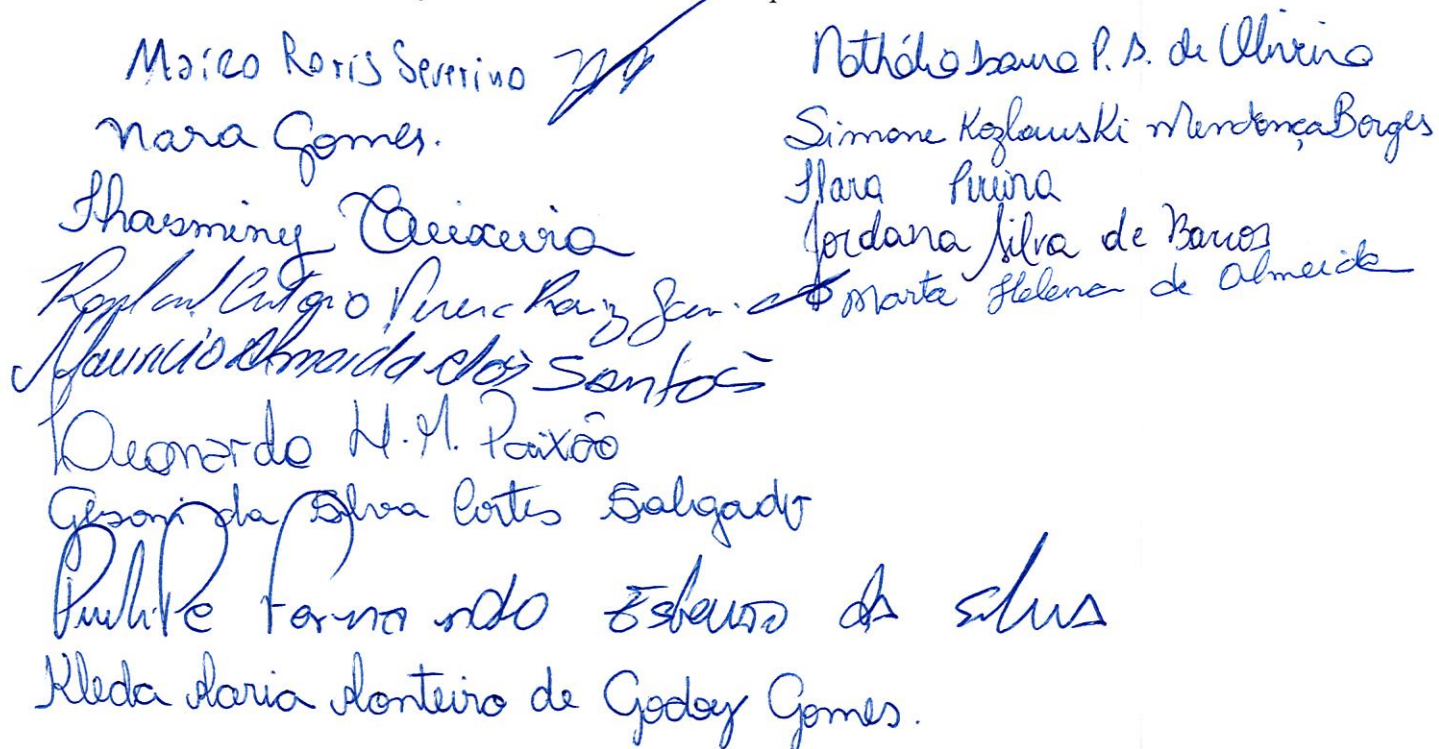 Maico Roris Severino
Nara Gomes.
Thasminy Teixeira
Maurício Almeida dos Santos
Leonardo H. M. Paixão
Gesoni da Silva Cortes Salgado
Fernando da Silva
Kleda Maria Monteiro de Godoy Gomes.
Nathália P. S. de Oliveira
Simone Kozlauski Mendonça Borges
Ilara Pereira
Jordana Silva de Barros
Marta Helena de Almeida